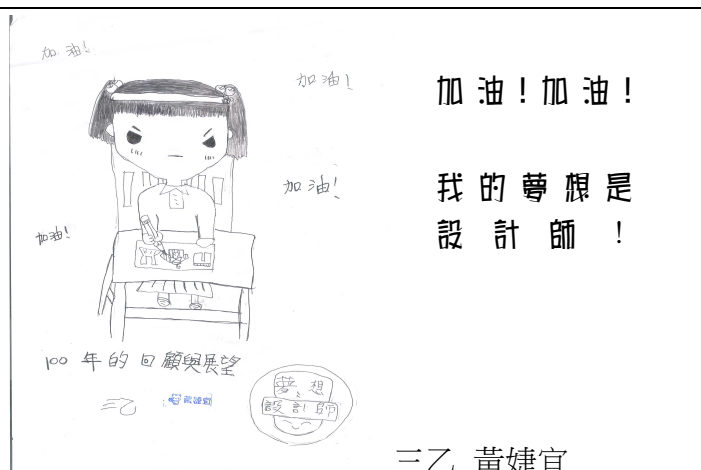 加油!
加油!
加油!
加油!
100 年的回顧與展望
三乙
夢想
設計師
加油!加油!
我的夢想是
設計師!
三乙 黃婕宜